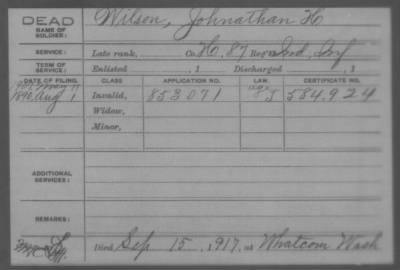 DEAD
NAME OF SOLDIER: Wilson, Johnathan H
SERVICE: Late rank, Co. H, 87 Reg't Ind. Inf
TERM OF SERVICE: Enlisted , 1 Discharged , 1
DATE OF FILING. CLASS APPLICATION NO. LAW. CERTIFICATE NO.
May 11
1890, Aug 1 Invalid, 853071 J 584.924
Widow,
Minor,
ADDITIONAL SERVICES:
REMARKS:
Died Sep 15, 1917, at Whatcom Wash